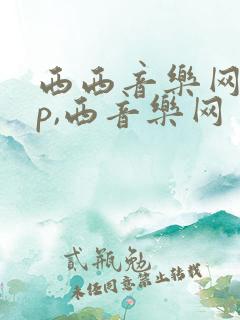 西西音樂网
p,西音樂网
貳瓶勉
未经同意禁止转载